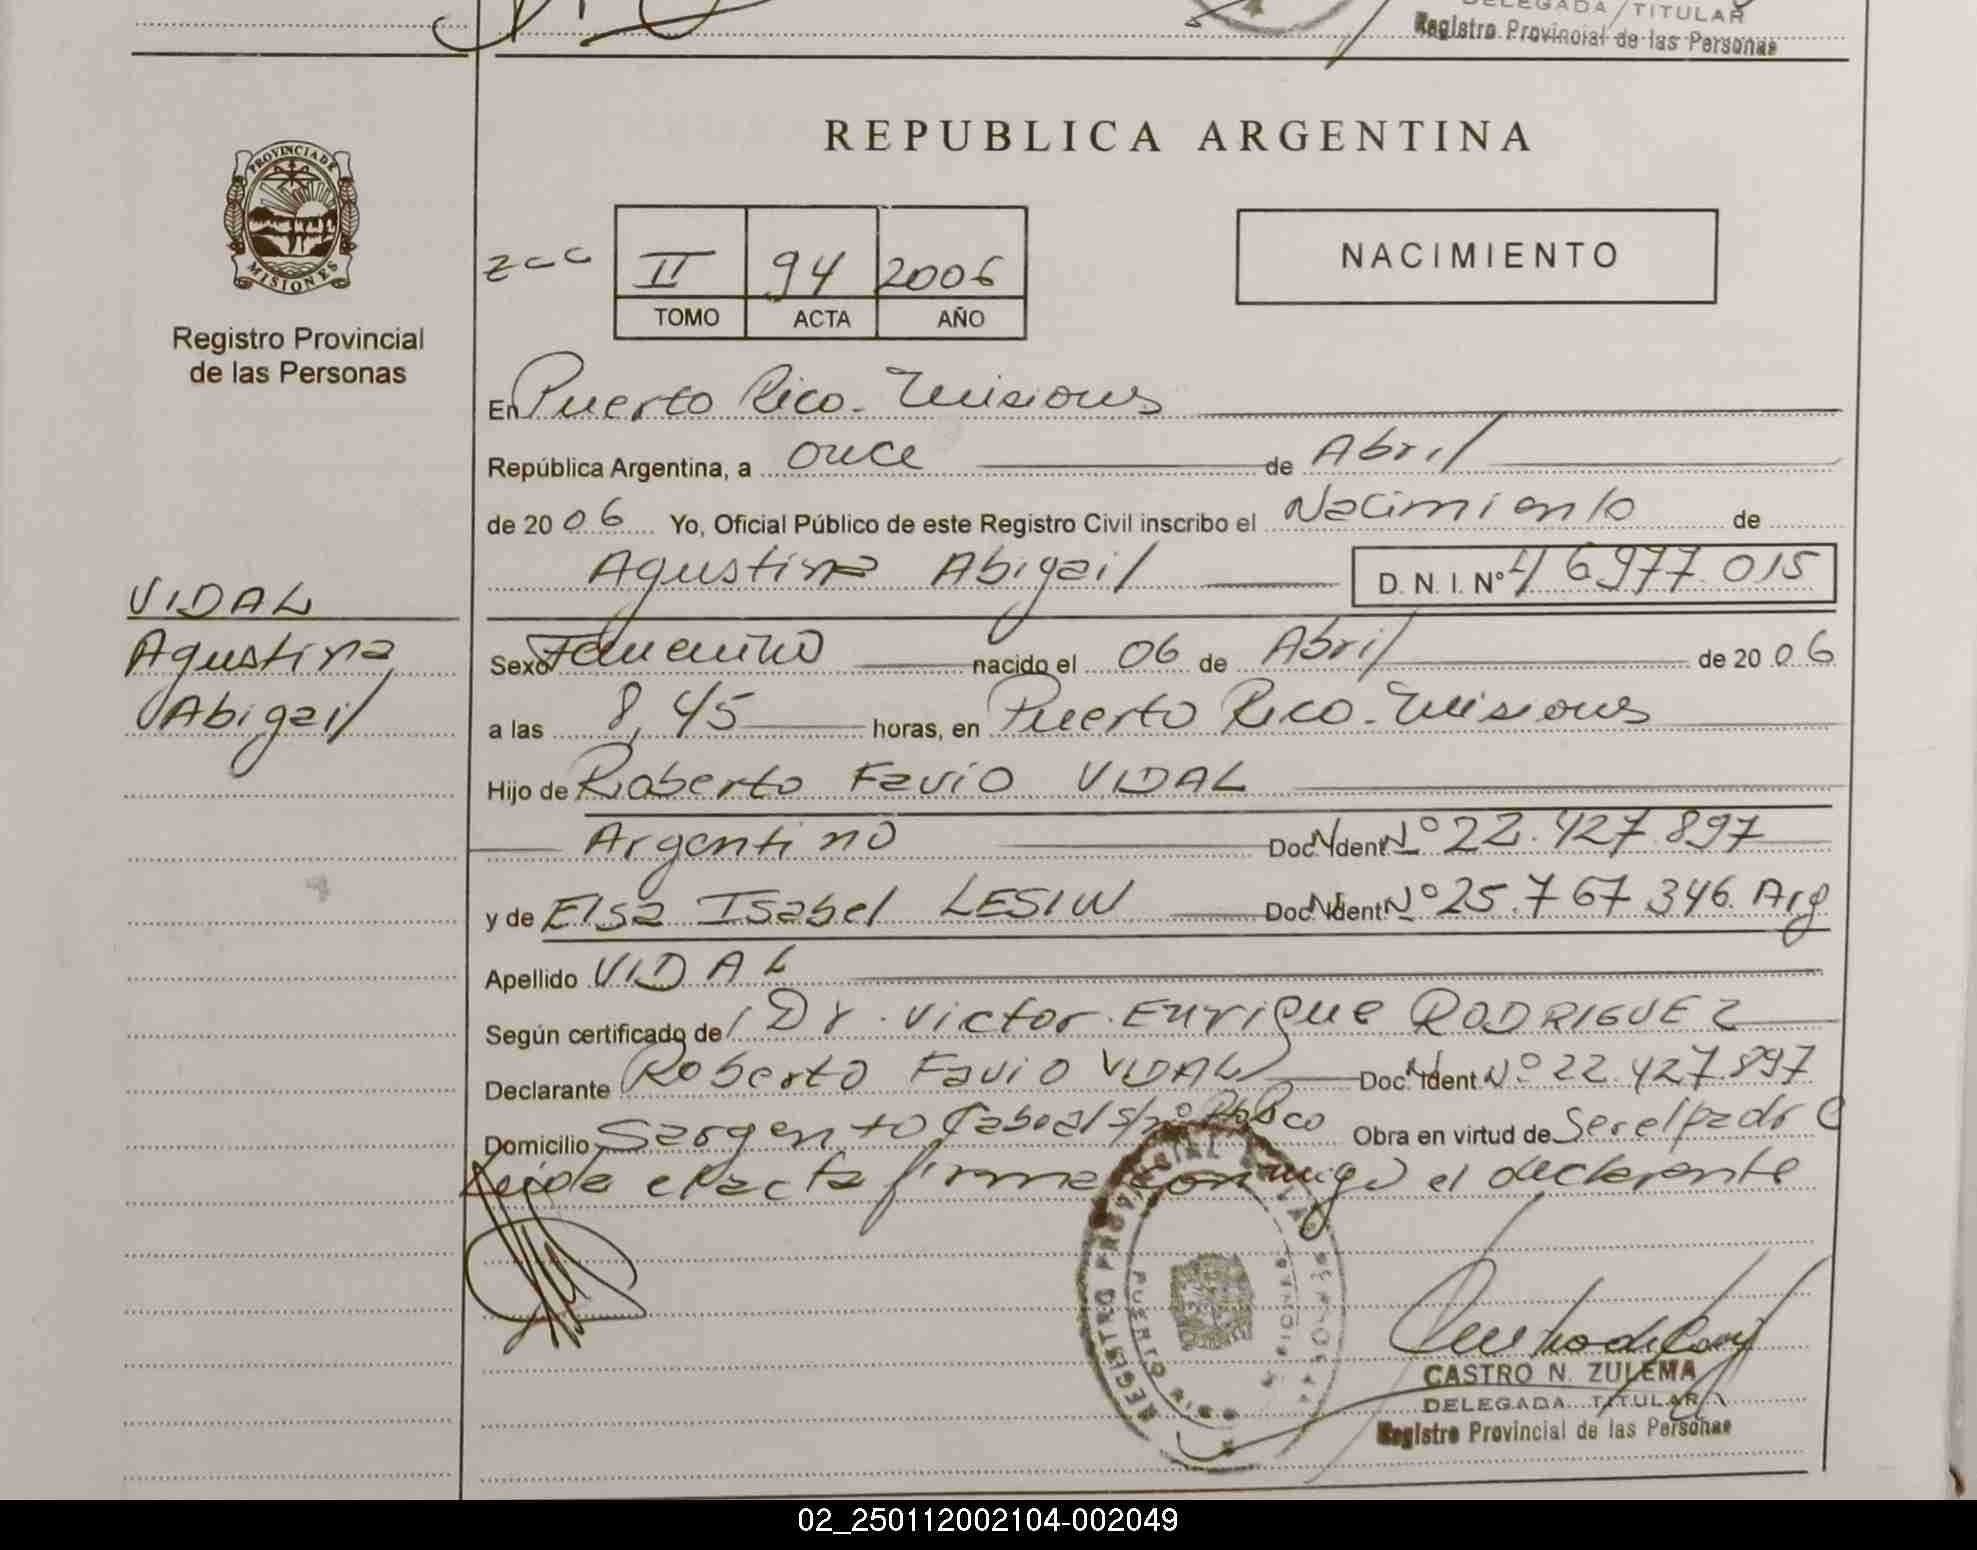 DELEGADA TITULAR
Registro Provincial de las Personas
REPUBLICA ARGENTINA
PROVINCIA DE
MISIONES
Registro Provincial
de las Personas
II 94 2006
TOMO ACTA AÑO
NACIMIENTO
En Puerto Rico - Misiones
República Argentina, a once de Abril
de 2006 Yo, Oficial Público de este Registro Civil inscribo el Nacimiento de
Agustina Abigail D. N. I. Nº 46977.015
VIDAL
Agustina
Abigail
Sexo Femenino nacido el 06 de Abril de 2006
a las 8,45 horas, en Puerto Rico - Misiones
Hijo de Roberto Favio VIDAL
Argentino Doc. Ident. Nº 22.427.897
y de Elsa Isabel LESIW Doc. Ident. Nº 25.767.346. Arg
Apellido VIDAL
Según certificado de Dr. Victor Enrique RODRIGUEZ
Declarante Roberto Favio VIDAL Doc. Ident Nº 22.427.897
Domicilio Sargento Cabral s/nº Pto Rico Obra en virtud de Ser el padre
Leida el acta firma conmigo el declarante
REGISTRO PROVINCIAL DE LAS PERSONAS
PUERTO RICO
MISIONES
CASTRO N. ZULEMA
DELEGADA TITULAR
Registro Provincial de las Personas
02_250112002104-002049